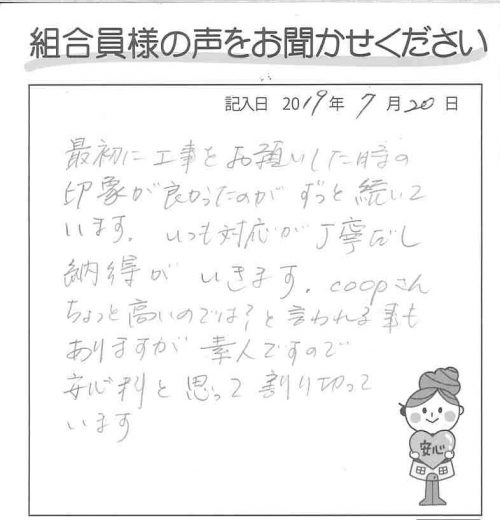 組合員様の声をお聞かせください
記入日 2019年 7月20日
最初に工事をお願いした時の
印象が良かったのが ずっと続いて
います。いつも対応が丁寧だし
納得が いきます。coopさん
ちょっと高いのでは?と言われる事も
ありますが 素人ですので
安心料と思って割り切って
います
安心